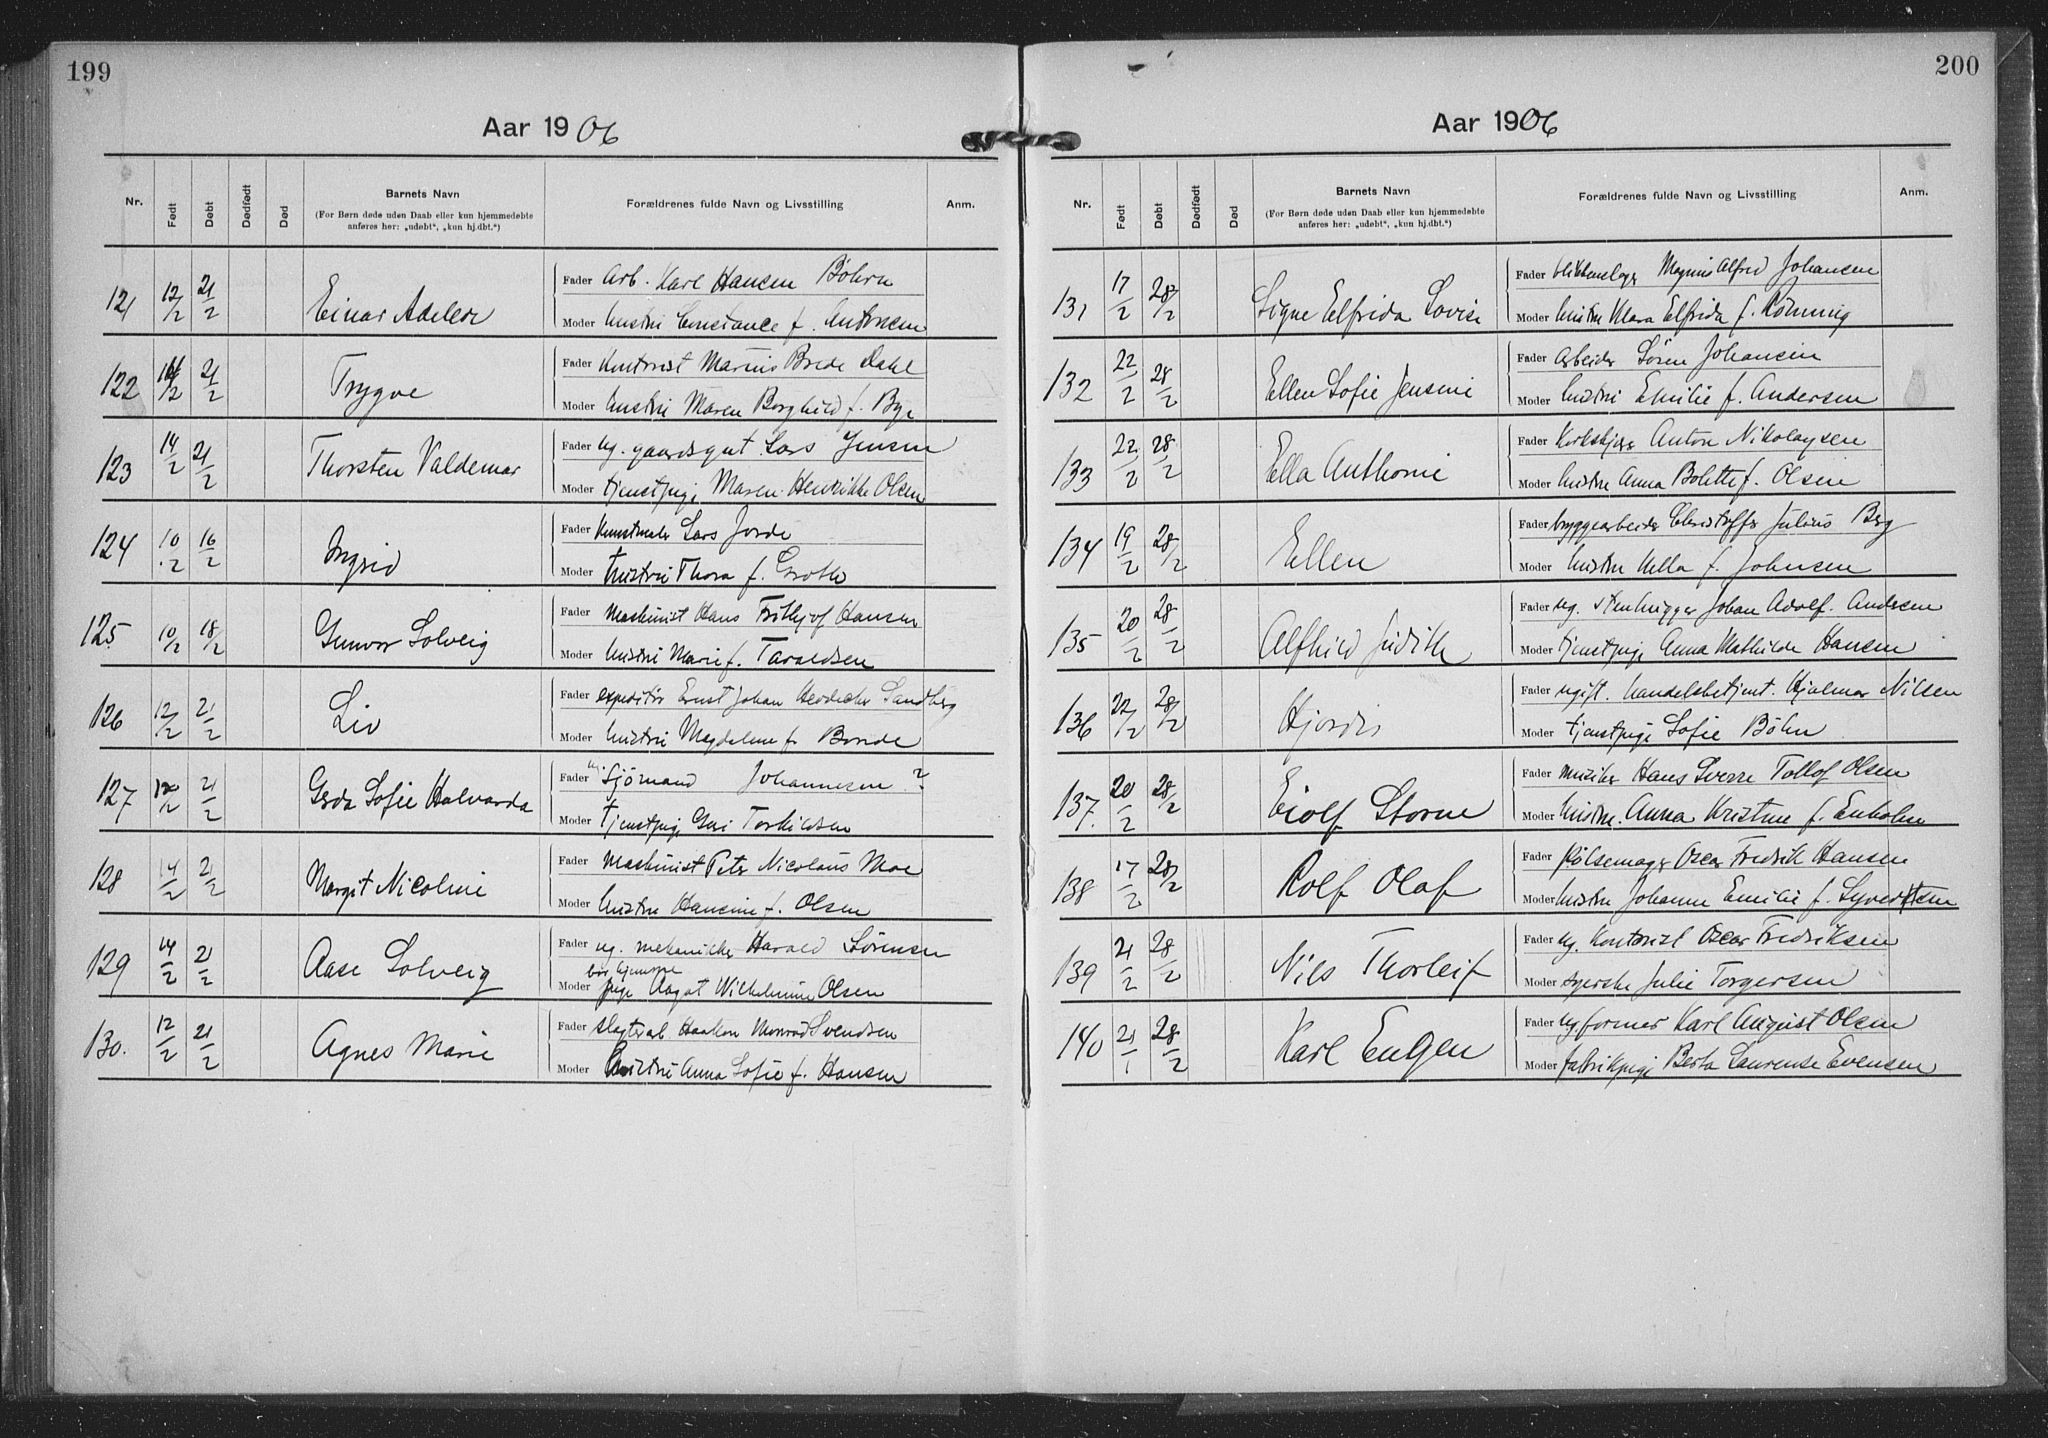 199
Aar 1906
Nr. Født Døbt Dødfødt Død Barnets Navn Forældrenes fulde Navn og Livsstilling Anm.
(For Børn døde uden Daab eller kun hjemmedøbte
anføres her: „udøbt“, „kun hj.dbt.“)
Fader Arb. Karl Hansen Böhrn
121 12/2 21/2 Einar Adeler
Moder hustru Constance f. Antonsen
Fader Kontorist Marius Brede Dahl
122 21/2 Trygve
Moder hustru Maren Borghild f. Bye
Fader ug. gaardsgut Lars Jensen
123 14/2 21/2 Thorsten Valdemar
Moder tjenestpige Maren Henrikke Olsen
Fader Kunstmaler Lars Jorde
124 10/2 16/2 Ingrid
Moder hustru Thora f. Groth
Fader Maskinist Hans Frithjof Hansen
125 10/2 18/2 Gunvor Solveig
Moder hustru Marie f. Taraldsen
Fader expeditør Ernst Johan Sandberg
126 12/2 21/2 Liv
Moder hustru Magdalene f.
Fader ug. Sjömand Johannesen ?
127 21/2 Gerda Sofie Halvarda
Moder tjenestpige Guri Torkildsen
Fader Maskinist Peter Nicolaus Moe
128 14/2 21/2 Margit Nicoline
Moder hustru Hansine f. Olsen
Fader ug. mekaniker Harald Sörensen
129 14/2 21/2 Aase Solveig
Moder pige Aagot Wilhelmine Olsen
Fader Haakon Monrad Svendsen
130. 12/2 21/2 Agnes Marie
Moder hustru Anna Sofie f. Hansen
200
Aar 1906
Nr. Født Døbt Dødfødt Død Barnets Navn Forældrenes fulde Navn og Livsstilling Anm.
(For Børn døde uden Daab eller kun hjemmedøbte
anføres her: „udøbt“, „kun hj.dbt.“)
Fader blikkenslager Magnus Alfred Johansen
131 17/2 28/2 Signe Elfrida Lovise
Moder hustru Klara Elfrida f. Rönning
Fader Arbeider Sören Johansen
132 22/2 28/2 Ellen Sofie Jensine
Moder hustru Emilie f. Andersen
Fader Anton Nikolaysen
133 22/2 28/2 Ella Anthonie
Moder hustru Anna Bolette f. Olsen
Fader bryggearbeider Christoffer Julius Berg
134 19/2 28/2 Ellen
Moder hustru f. Johnsen
Fader ug. stenhugger Johan Adolf Andersen
135 20/2 28/2 Alfhild Judith
Moder tjenestpige Anna Mathilde Hansen
Fader ugift. handelsbetjent Hjalmar Nilsen
136 22/2 28/2 Hjördis
Moder tjenestpige Sofie Böhn
Fader Musiker Hans Sverre Tollof Olsen
137. 20/2 28/2 Eiolf Storm
Moder hustru Anna Kristine f. Enholm
Fader Pölsemager Oscar Fredrik Hansen
138 17/2 28/2 Rolf Olaf
Moder hustru Johanne Emilie f. Syvertsen
Fader ug. Kontorist Oscar Fredriksen
139 21/2 28/2 Nils Thorleif
Moder syerske Julie Torgersen
Fader ug former Karl August Olsen
140 21/1 28/2 Karl Eugen
Moder fabrikpige Berta Laurense Evensen